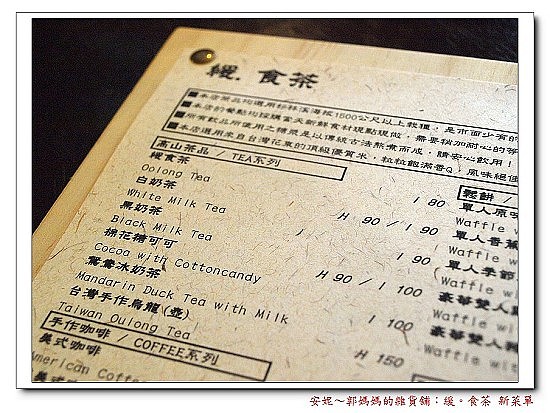 緩．食茶
■本店茶品均選用杉林溪海拔1500公尺以上栽種，是市面少有的
■本店的餐點均採購當天新鮮食材現點現做，需要稍加耐心的等
■所有飲品所使用之糖漿是以傳統古法熬煮而成，請安心飲用！
■本店選用來自台灣花東的頂級優質米，粒粒飽滿香Q，風味絕佳
高山茶品 / TEA系列
緩食茶 I 80
Oolong Tea
白奶茶 H 90 / I 90
White Milk Tea
黑奶茶 H 90 / I 90
Black Milk Tea
棉花糖可可 H 90 / I 100
Cocoa with Cottoncandy
鴛鴦冰奶茶 I 100
Mandarin Duck Tea with Milk
台灣手作烏龍(壺) I 150
Taiwan Oulong Tea
手作咖啡 / COFFEE系列
美式咖啡
American Coffee
美式
鬆餅 /
單人原味
Waffle w
單人香蕉
Waffle w
單人季節
Waffle w
豪華雙人
Waffle wit
豪華雙人
Waffle wit
安妮～郭媽媽的雜貨舖：緩。食茶 新菜單